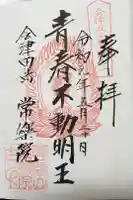 奉拝
令和元年五月二十日
青春不動明王
会津田島
常楽院